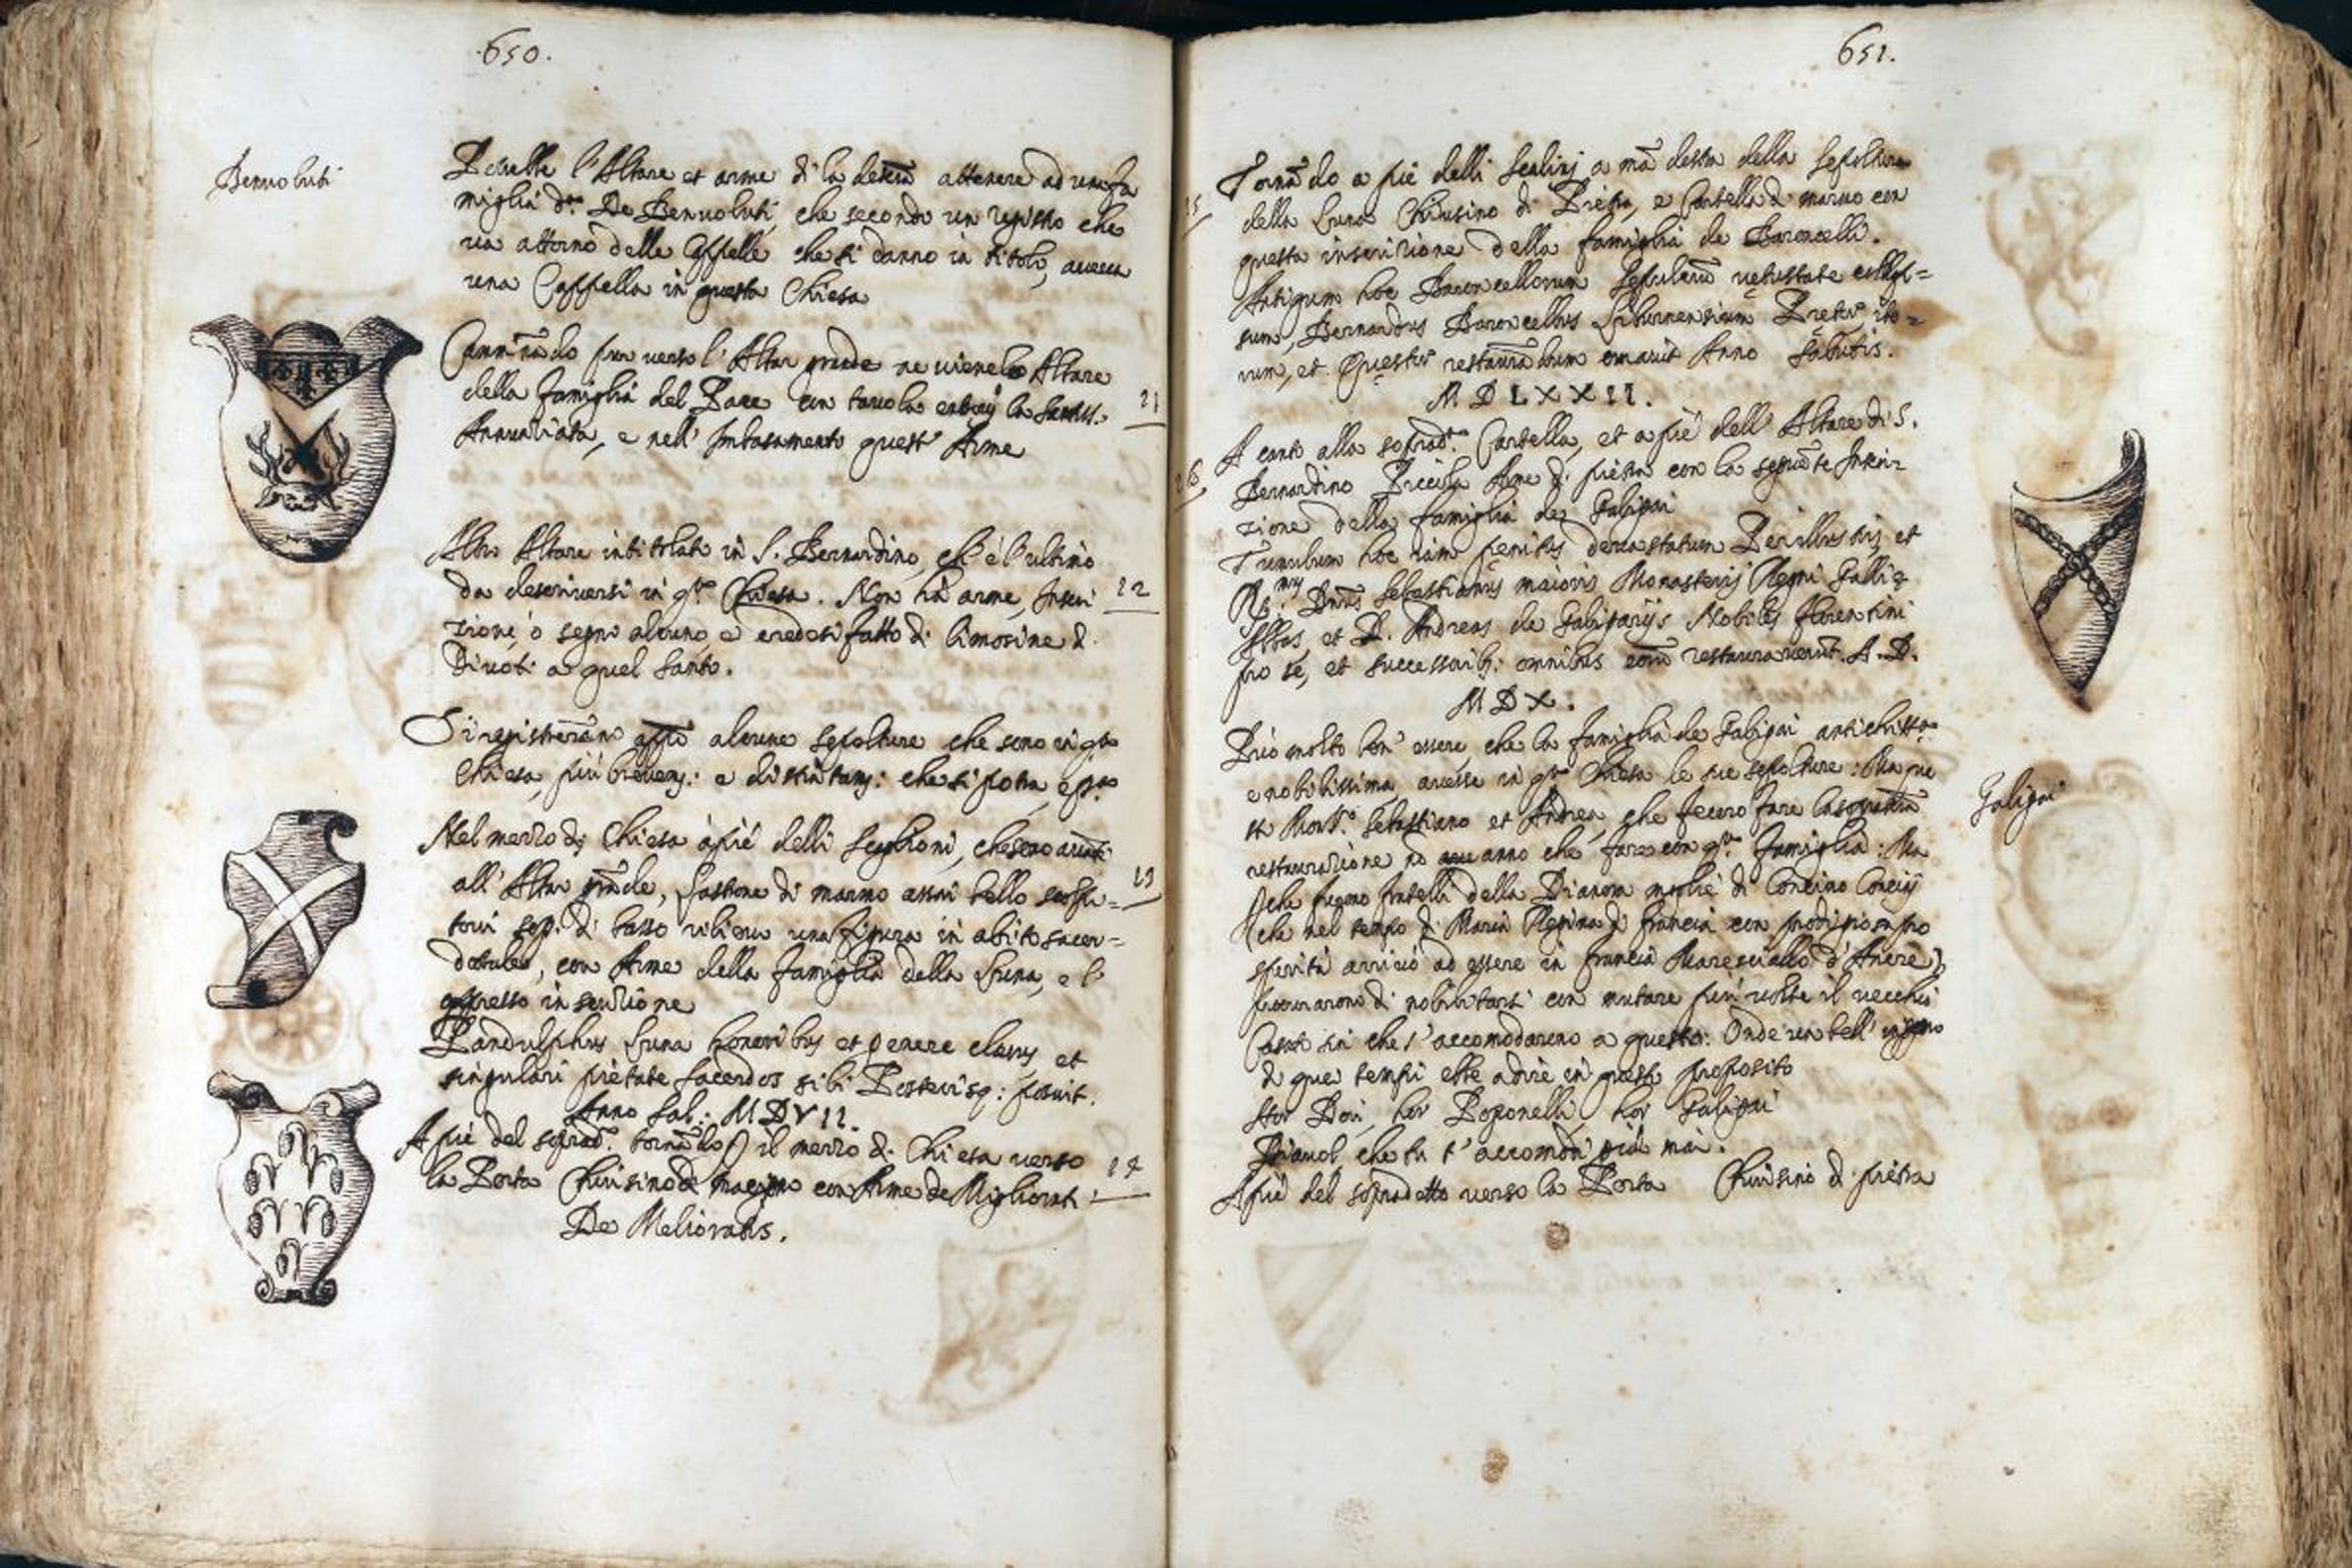 650.
Benvoluti
Potrebbe l'Altare et arme di la attenere ad una fa
miglia d.ta De Benvoluti, che secondo un registro che
va attorno delle Cappelle che si danno in titolo, aveva
una Cappella in questa Chiesa
pur verso l'Altar grande ne viene lo Altare
della famiglia del Pace con tavola la
Annunziata, e nell'Imbasamento quest'Arme
21
Altro Altare intitolato in S. Bernardino, ch'è l'ultimo
da descriversi in q.ta Chiesa. Non hà arme, Inscri
zione, o segno alcuno, e credesi fatto di limosine d.
Divoti a quel Santo.
22
alcune sepolture che sono in q.ta
Chiesa, più brevem: e distintam: che si potra
Nel mezzo di Chiesa à piè delli scaglioni, che sono
all'Altar grãde, Lastrone di marmo assai bello scolpi=
tovi sop. di basso rilievo una figura in abito sacer=
dotale, con Arme della famiglia della Luna, e l'
appresso inscrizione
23
Pandulphus Luna honoribus et genere clarus, et
singulari pietate sacerdos sibi Posterisq: posuit.
Anno Sal: MDVII.
A piè del soprad.o tornãdo p il mezzo di Chiesa verso
la Porta Chiusino di macigno con Arme de Migliorati
24
De Melioratis.
651.
Tornãdo a piè delli Scalini a mã destra della Sepoltura
della Luna Chiusino di Pietra, e Cartella di marmo con
questa inscrizione della famiglia de Baroncelli.
25
Antiquum hoc Baroncellorum Sepulcrũ vetustate collap=
sum, Bernardus Baroncellus Liburnensium
rum, et restaurãdum curavit Anno Salutis.
MDLXXII.
A canto alla soprad.a Cartella, et a piè dell'Altare di S.
Bernardino Piccola Arme di pietra con la seguẽte Inscri
zione della famiglia de Galigai
26
Tumulum hoc iam penitus devastatum Perillustris et
R.mus Dnus Sebastianus maioris Monasterij Regni Gallie
Abbas, et D. Andreas de Galigarijs Nobiles florentini
pro se, et successorib: omnibus restauraverũt. A. D.
MDX.
Può molto ben' essere che la famiglia de Galigai antichiss.a
e nobilissima, avesse in q.ta Chiesa le sue sepolture: Ma que
st Sebastiano et Andrea, che fecero fare la sopradetta
restaurazione nõ anno che fare con q.ta famiglia: Ma
che furono fratelli della Dianora moglie di Concino Concini
che nel tempo di Maria Regina di Francia con prodigiosa pro
sperità arrivò ad essere in Francia Maresciallo d'Ancre)
procurarono di nobilitarsi con mutare più volte il vecchio
Casato sin che s'accomodarono a questo: Onde un bell'ingegno
di quei tempi ebbe a dire in questo proposito
Hor Dori, hor Boponelli, hor Galigai
Diavol che tu t'accomodi più mai.
A piè del sopradetto verso la Porta Chiusino di pietra
Galigai